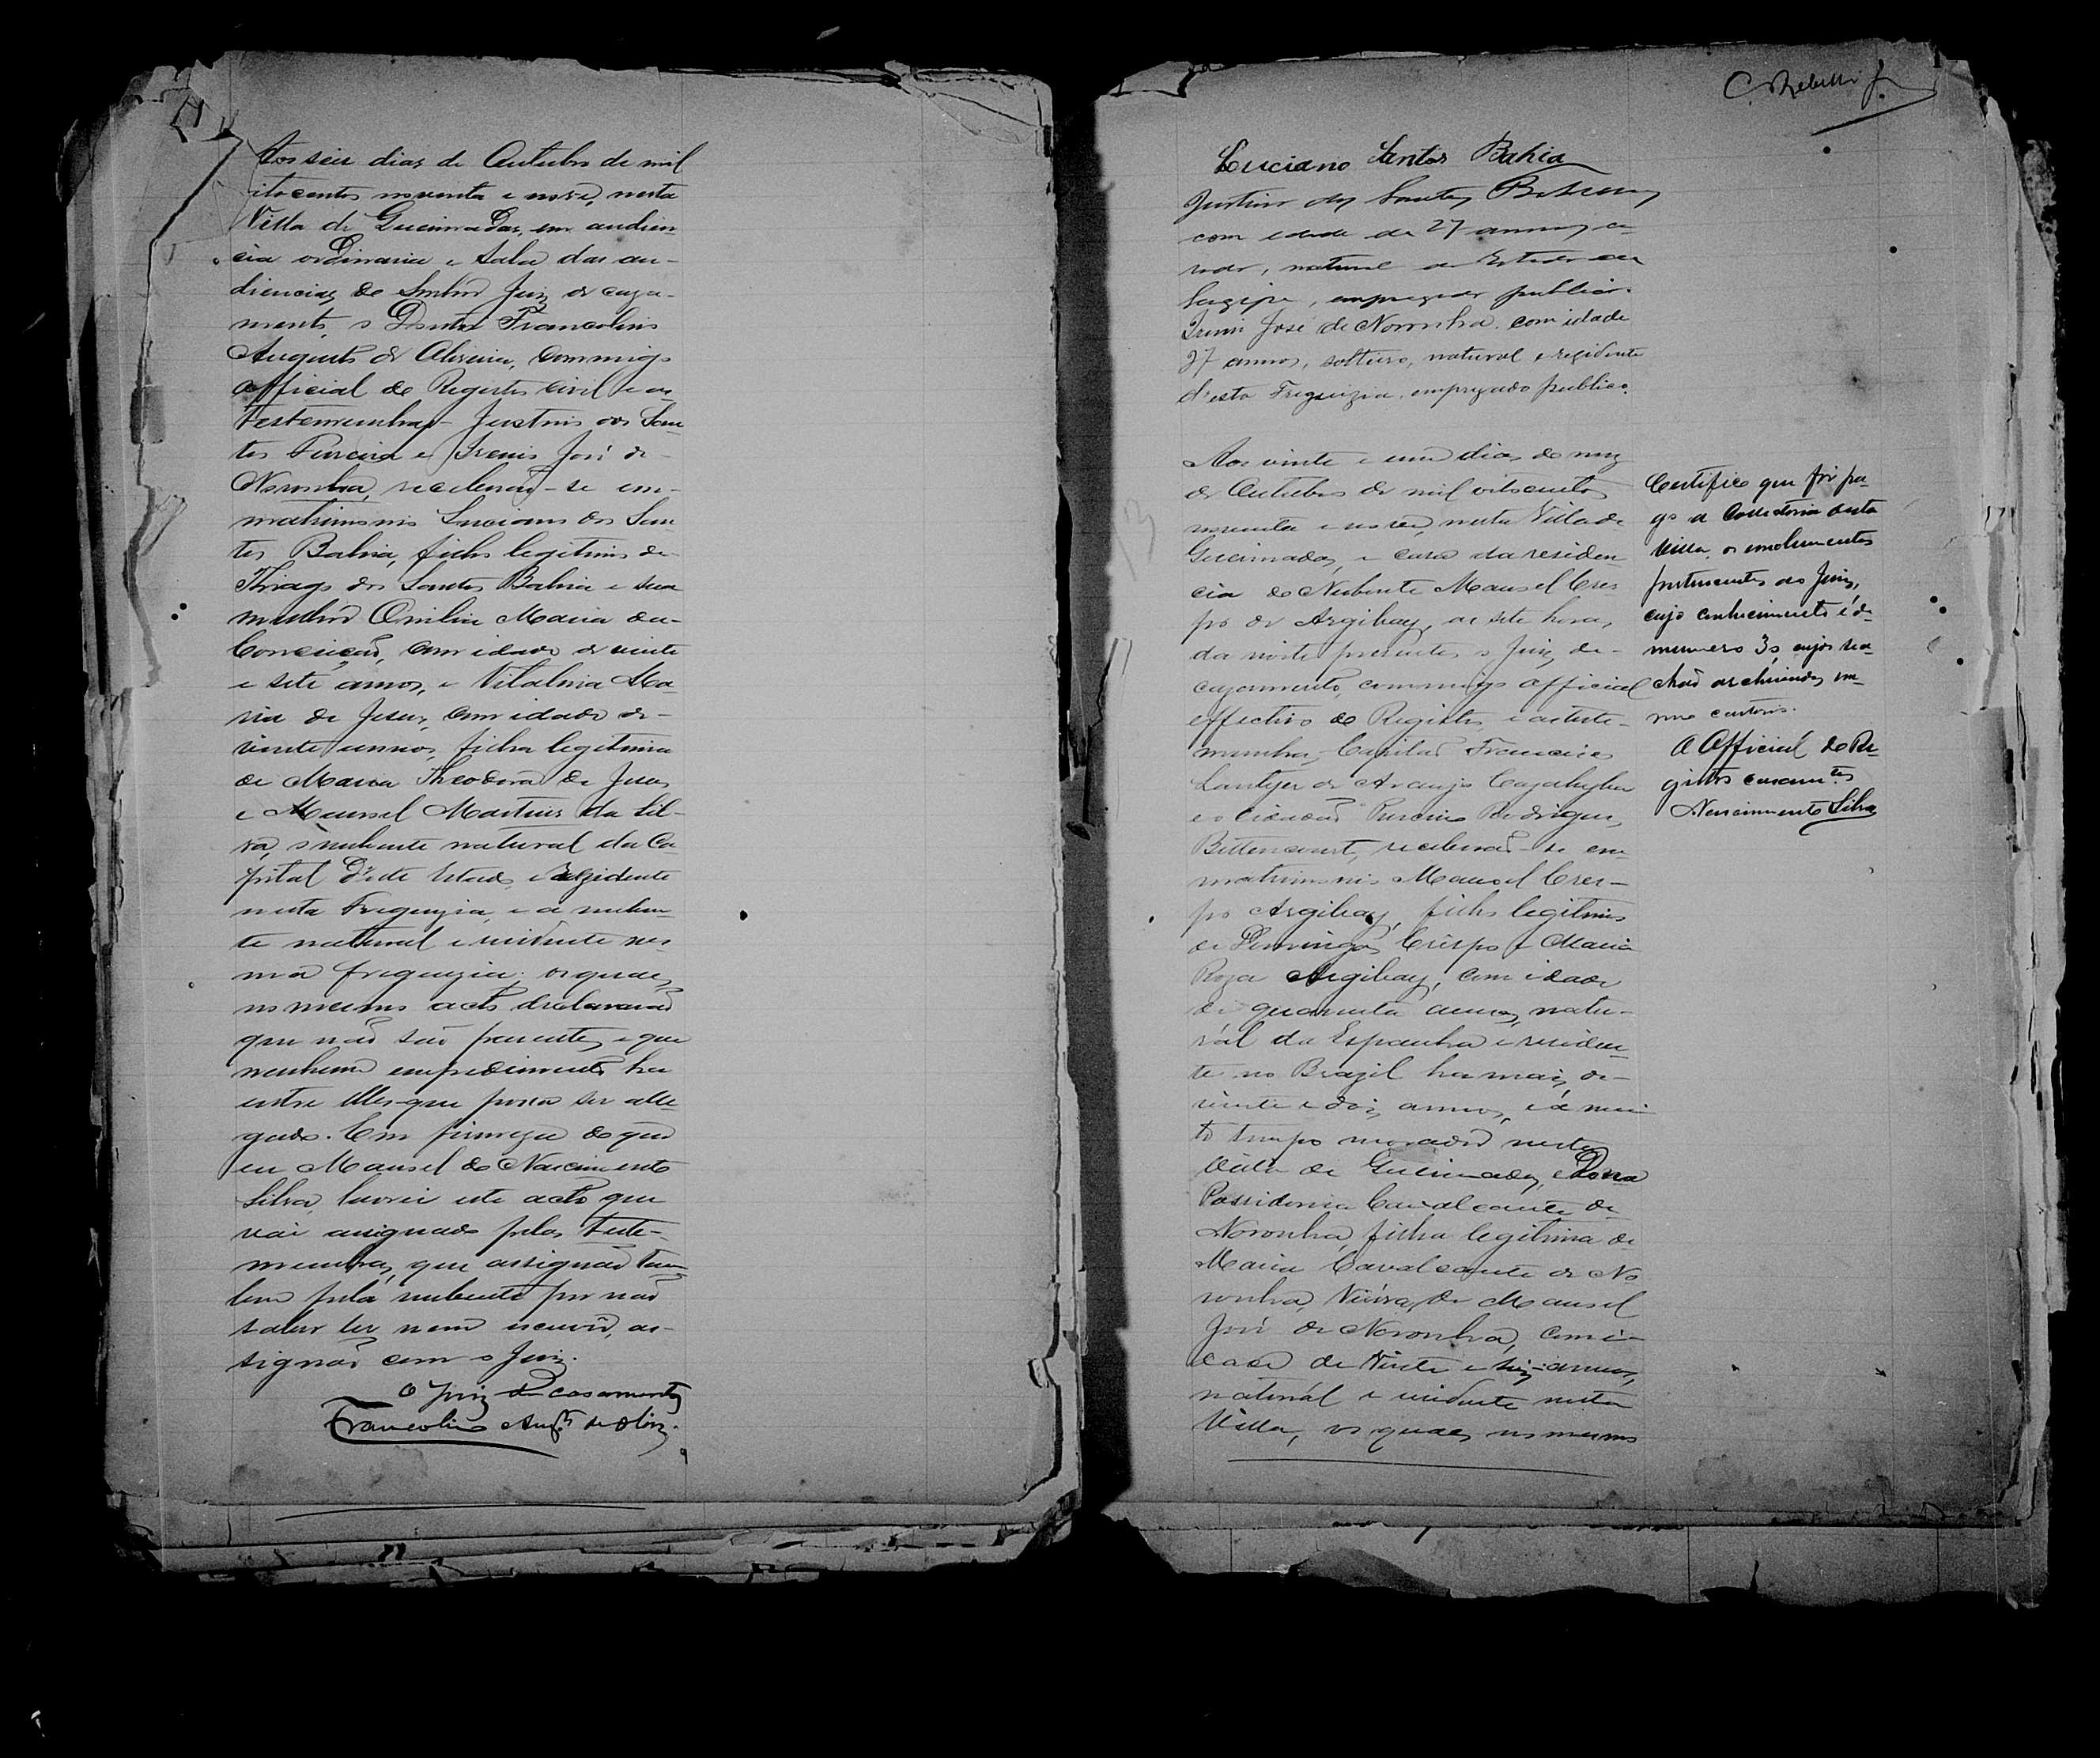 Aos seis dias de Outubro de mil
oitocentos noventa e nove, nesta
Villa de Queimadas, em audien-
cia ordinaria e sala das au-
diencias do Senhor Juiz de caza-
mento, o Doutor Francolino
Augusto de Oliveira, commigo
official do Registro civil e as
testemunhas Justino dos San-
tos Pereira e Irenio José de
Noronha, receberaõ-se em
matrimonio Luciano dos San-
tos Bahia, filho legitimo de
Thiago dos Santos Bahia e sua
mulher Emilia Maria da
Conceiçaõ, com idade de vinte
e sete annos, e Vitalina Ma-
ria de Jesus, com idade de
vinte annos, filha legitima
de Maria Theodora de Jesus
e Manoel Martins da Sil-
va, o nubente natural da Ca-
pital d'este Estado, e rezidente
nesta Freguezia, e a nuben-
te natural e residente nes-
ma freguezia; os quaes,
no mesmo acto declararaõ
que naõ saõ parentes, e que
nenhum empedimento ha
entre elles que possa ser alle-
gado. Em firmeza do que
eu Manoel do Nascimento
Silva, lavrei este acto que
vai assignado pelas teste-
munhas, que assignaõ tam-
bem pela nubente por naõ
saber ler nem escrever, as-
signaõ com o Juiz.
O Juiz de casamentos
Francolino Augto de Olivra.
C. Rebello Jr.
Luciano Santos Bahia
Justino dos Santos
com edade de 27 annos, ca-
sado, natural do Estado de
Sergipe, empregado publico.
Irenio José de Noronha, com idade
27 annos, solteiro, natural e rezidente
d'esta Freguizia, empregado publico.
Aos vinte e um dias do mez
de Outubro de mil oitocentos
noventa e nove, nesta Villa de
Queimadas, e casa da residen-
cia do Nubente Manoel Cres-
po de Argibay, as sete horas
da noite presentes o Juiz de
cazamento, commigo official
effectivo do Registro, e as teste-
munhas, Capitaõ Francisco
de Araujo
e o Cidadaõ Rodrigues
Bittencourt, receberaõ-se em
matrimonio Manoel Cres-
po Argibay, filho legitimo
de Domingos Crespo e Maria
Roza Argibay, com idade
de quarenta annos, natu-
ral da Espanha e residen-
te no Brazil ha mais de
vinte e dois annos, e á mui-
to tempo morador nesta
Villa de Queimadas, e Dona
Possidonia Cavalcante de
Noronha, filha legitima de
Maria Cavalcante de No-
ronha, Viúva de Manoel
José de Noronha, com i-
dade de Vinte e seis annos,
natural e residente nesta
Villa, os quaes no mesmo
Certifico que foi pa-
go a Collectoria desta
Villa, os emolumentos
pertencentes ao Juiz,
cujo conhecimento é de
numero 3, cujos se a-
chaõ archivados em
meu cartorio.
O Official do Re-
gistro casamtos
Nascimento Silva